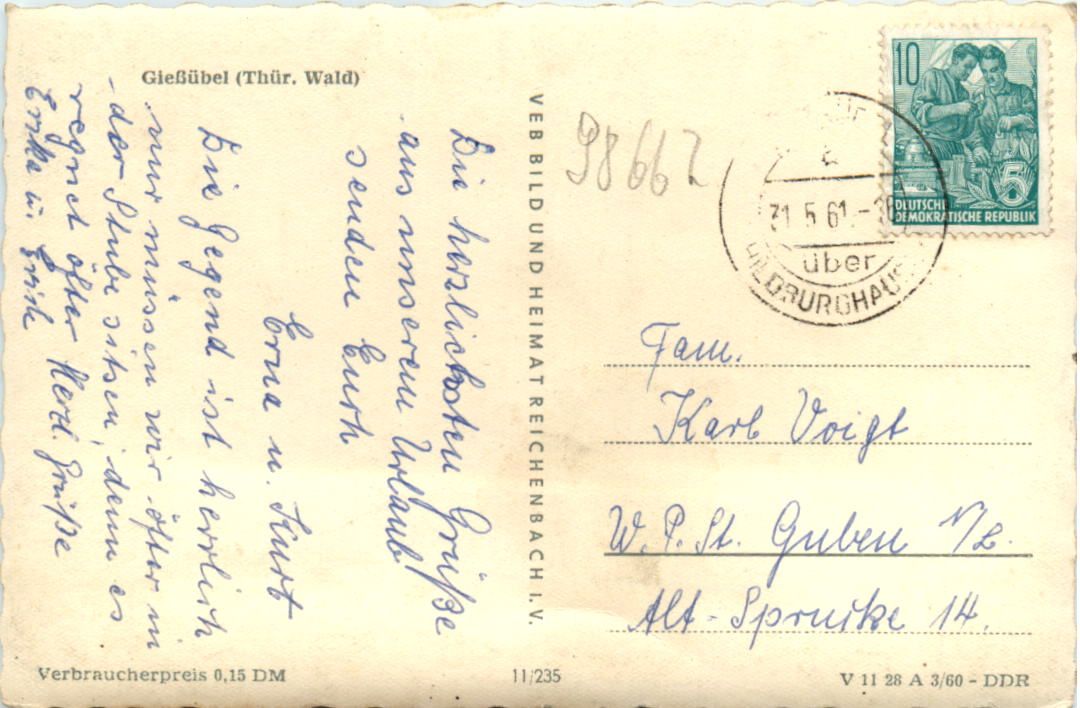 Gießübel (Thür. Wald)
Die herzlichsten Grüße
aus unserem Urlaub
senden Euch
Erna u. Kurt
Die Gegend ist herrlich
nur müssen wir öfter in
der Stube sitsen, denn es
regnet öfter Herzl. Grüße
Erika u. Erich
VEB BILD UND HEIMAT REICHENBACH I. V.
98667
10
5
DEUTSCHE
DEMOKRATISCHE REPUBLIK
31.5.61.-
über
HILDBURGHAUS
Fam.
Karl Voigt
W. P. St. Guben N/L.
Alt-Sprucke 14.
Verbraucherpreis 0,15 DM
11/235
V 11 28 A 3/60 - DDR